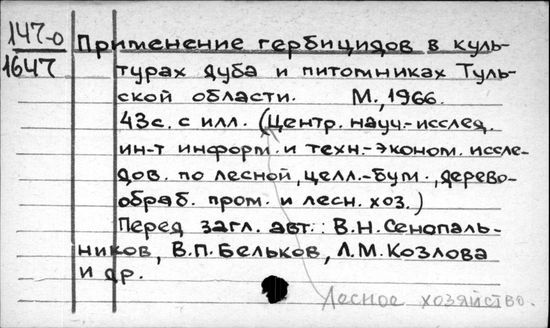 147-0
1647
Применение гербицидов в куль-
турах дуба и питомниках Туль-
ской области. М., 1966.
43с. с илл. (Центр. науч.-исслед.
ин-т информ. и техн.-эконом. иссле-
дов. по лесной, целл.-бум., дерево-
обраб. пром. и лесн. хоз.)
Перед загл. авт.: В.Н. Сенопаль-
ников, В.П. Бельков, Л.М. Козлова
и др.
Лесное хозяйство.